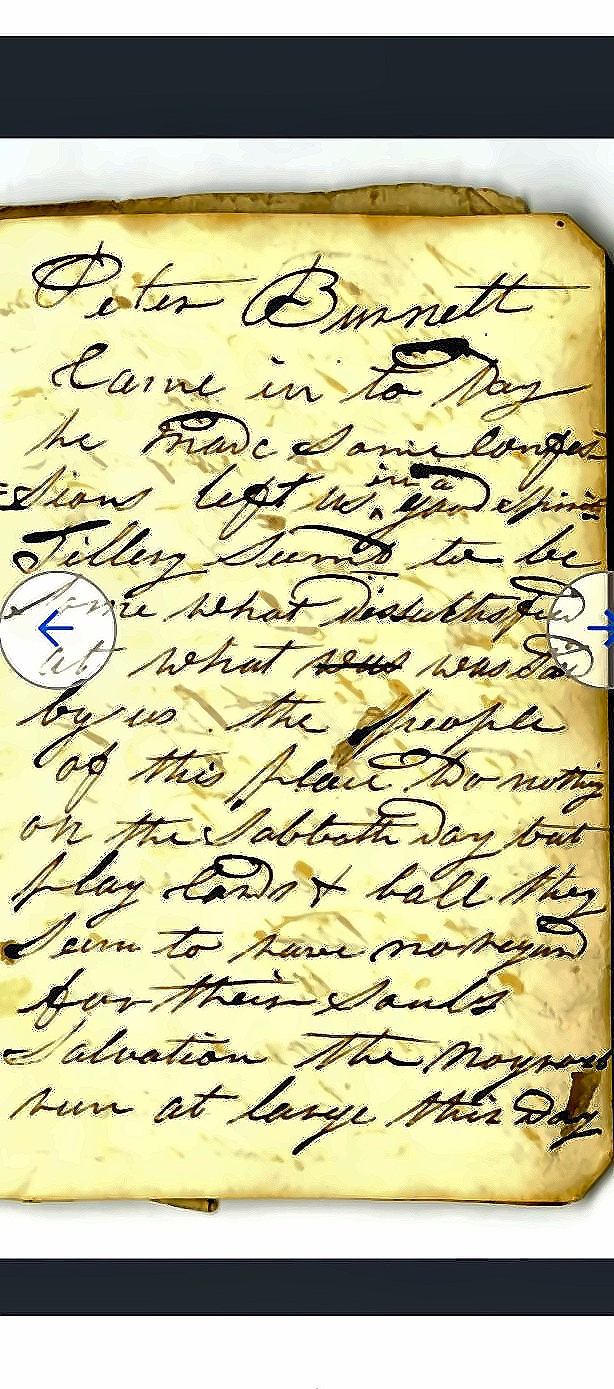 Peter Burnett
Came in to Day
he made Some Confes
=Sions left us in a good Spirits
Tillery Seemd to be
Some what
at what was was
by us the people
of this place Do nothing
on the Sabbath Day but
play Cards & ball they
Seem to have no regard
for their Souls
Salvation the
run at large this Day